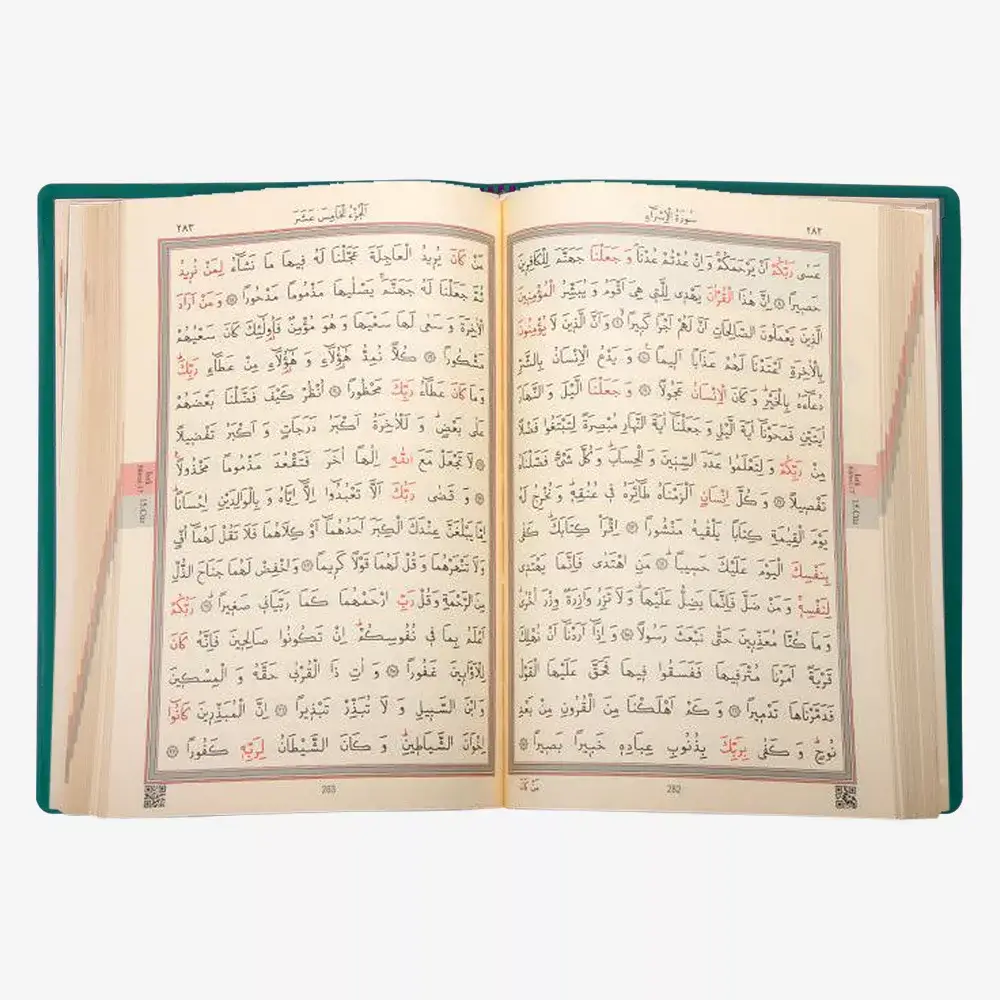 سُورَةُ الْإِسْرَاءِ
٢٨٢
عَسٰى رَبُّكُمْ اَنْ يَرْحَمَكُمْ وَاِنْ عُدْتُمْ عُدْنَا وَجَعَلْنَا جَهَنَّمَ لِلْكَافِرِينَ
حَصِيرًا ۝ اِنَّ هٰذَا الْقُرْاٰنَ يَهْدِى لِلَّتِى هِىَ اَقْوَمُ وَيُبَشِّرُ الْمُؤْمِنِينَ
الَّذِينَ يَعْمَلُونَ الصَّالِحَاتِ اَنَّ لَهُمْ اَجْرًا كَبِيرًا ۝ وَاَنَّ الَّذِينَ لَا يُؤْمِنُونَ
بِالْاٰخِرَةِ اَعْتَدْنَا لَهُمْ عَذَابًا اَلِيمًا ۝ وَيَدْعُ الْاِنْسَانُ بِالشَّرِّ
دُعَاءَهُ بِالْخَيْرِ وَكَانَ الْاِنْسَانُ عَجُولًا ۝ وَجَعَلْنَا الَّيْلَ وَالنَّهَارَ
اٰيَتَيْنِ فَمَحَوْنَا اٰيَةَ الَّيْلِ وَجَعَلْنَا اٰيَةَ النَّهَارِ مُبْصِرَةً لِتَبْتَغُوا فَضْلًا
مِنْ رَبِّكُمْ وَلِتَعْلَمُوا عَدَدَ السِّنِينَ وَالْحِسَابَ وَكُلَّ شَىْءٍ فَصَّلْنَاهُ
تَفْصِيلًا ۝ وَكُلَّ اِنْسَانٍ اَلْزَمْنَاهُ طَائِرَهُ فِى عُنُقِهِ وَنُخْرِجُ لَهُ
يَوْمَ الْقِيٰمَةِ كِتَابًا يَلْقٰيهُ مَنْشُورًا ۝ اِقْرَأْ كِتَابَكَ كَفٰى
بِنَفْسِكَ الْيَوْمَ عَلَيْكَ حَسِيبًا ۝ مَنِ اهْتَدٰى فَاِنَّمَا يَهْتَدِى
لِنَفْسِهِ وَمَنْ ضَلَّ فَاِنَّمَا يَضِلُّ عَلَيْهَا وَلَا تَزِرُ وَازِرَةٌ وِزْرَ اُخْرٰى
وَمَا كُنَّا مُعَذِّبِينَ حَتّٰى نَبْعَثَ رَسُولًا ۝ وَاِذَا اَرَدْنَا اَنْ نُهْلِكَ
قَرْيَةً اَمَرْنَا مُتْرَفِيهَا فَفَسَقُوا فِيهَا فَحَقَّ عَلَيْهَا الْقَوْلُ
فَدَمَّرْنَاهَا تَدْمِيرًا ۝ وَكَمْ اَهْلَكْنَا مِنَ الْقُرُونِ مِنْ بَعْدِ
نُوحٍ وَكَفٰى بِرَبِّكَ بِذُنُوبِ عِبَادِهِ خَبِيرًا بَصِيرًا ۝
282
مَنْ كَانَ
15.Cüz
اَلْجُزْءُ الْخَامِسَ عَشَرَ
٢٨٣
مَنْ كَانَ يُرِيدُ الْعَاجِلَةَ عَجَّلْنَا لَهُ فِيهَا مَا نَشَاءُ لِمَنْ نُرِيدُ
ثُمَّ جَعَلْنَا لَهُ جَهَنَّمَ يَصْلٰيهَا مَذْمُومًا مَدْحُورًا ۝ وَمَنْ اَرَادَ
الْاٰخِرَةَ وَسَعٰى لَهَا سَعْيَهَا وَهُوَ مُؤْمِنٌ فَاُولٰئِكَ كَانَ سَعْيُهُمْ
مَشْكُورًا ۝ كُلًّا نُمِدُّ هٰؤُلَاءِ وَهٰؤُلَاءِ مِنْ عَطَاءِ رَبِّكَ
وَمَا كَانَ عَطَاءُ رَبِّكَ مَحْظُورًا ۝ اُنْظُرْ كَيْفَ فَضَّلْنَا بَعْضَهُمْ
عَلٰى بَعْضٍ وَلَلْاٰخِرَةُ اَكْبَرُ دَرَجَاتٍ وَاَكْبَرُ تَفْضِيلًا
۝ لَا تَجْعَلْ مَعَ اللّٰهِ اِلٰهًا اٰخَرَ فَتَقْعُدَ مَذْمُومًا مَخْذُولًا
۝ وَقَضٰى رَبُّكَ اَلَّا تَعْبُدُوا اِلَّا اِيَّاهُ وَبِالْوَالِدَيْنِ اِحْسَانًا
اِمَّا يَبْلُغَنَّ عِنْدَكَ الْكِبَرَ اَحَدُهُمَا اَوْ كِلَاهُمَا فَلَا تَقُلْ لَهُمَا اُفٍّ
وَلَا تَنْهَرْهُمَا وَقُلْ لَهُمَا قَوْلًا كَرِيمًا ۝ وَاخْفِضْ لَهُمَا جَنَاحَ الذُّلِّ
مِنَ الرَّحْمَةِ وَقُلْ رَبِّ ارْحَمْهُمَا كَمَا رَبَّيَانِى صَغِيرًا ۝ رَبُّكُمْ
اَعْلَمُ بِمَا فِى نُفُوسِكُمْ اِنْ تَكُونُوا صَالِحِينَ فَاِنَّهُ كَانَ
لِلْاَوَّابِينَ غَفُورًا ۝ وَاٰتِ ذَا الْقُرْبٰى حَقَّهُ وَالْمِسْكِينَ
وَابْنَ السَّبِيلِ وَلَا تُبَذِّرْ تَبْذِيرًا ۝ اِنَّ الْمُبَذِّرِينَ كَانُوا
اِخْوَانَ الشَّيَاطِينِ وَكَانَ الشَّيْطَانُ لِرَبِّهِ كَفُورًا ۝
283
15.Cüz